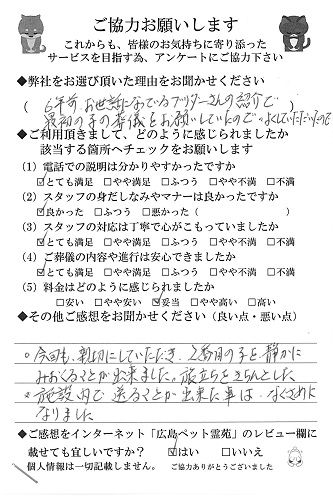 ご協力お願いします
これからも、皆様のお気持ちに寄り添った
サービスを目指す為、アンケートにご協力下さい
◆弊社をお選び頂いた理由をお聞かせください
( 6年前、お世話になってるブリーダーさんの紹介で
最初の子の葬儀をお願いしていたので よくしていただいたので )
◆ご利用頂きまして、どのように感じられましたか
該当する箇所へチェックをお願いします
(1) 電話での説明は分かりやすかったですか
☑とても満足 □やや満足 □ふつう □やや不満 □不満
(2) スタッフの身だしなみやマナーは良かったですか
☑良かった □ふつう □悪かった ( )
(3) スタッフの対応は丁寧で心がこもっていましたか
☑とても満足 □やや満足 □ふつう □やや不満 □不満
(4) ご葬儀の内容や進行は安心できましたか
☑とても満足 □やや満足 □ふつう □やや不満 □不満
(5) 料金はどのように感じられましたか
□安い □やや安い ☑妥当 □やや高い □高い
◆その他ご感想をお聞かせください (良い点・悪い点)
○今回も、親切にしていただき、2番目の子を静かに
みおくることが出来ました。旅立ちをきちんとした
施設内で送ることが出来た事は、なぐさめに
なりました
◆ご感想をインターネット「広島ペット霊苑」のレビュー欄に
載せても宜しいですか? ☑はい □いいえ
個人情報は一切記載しません。 ご協力ありがとうございました